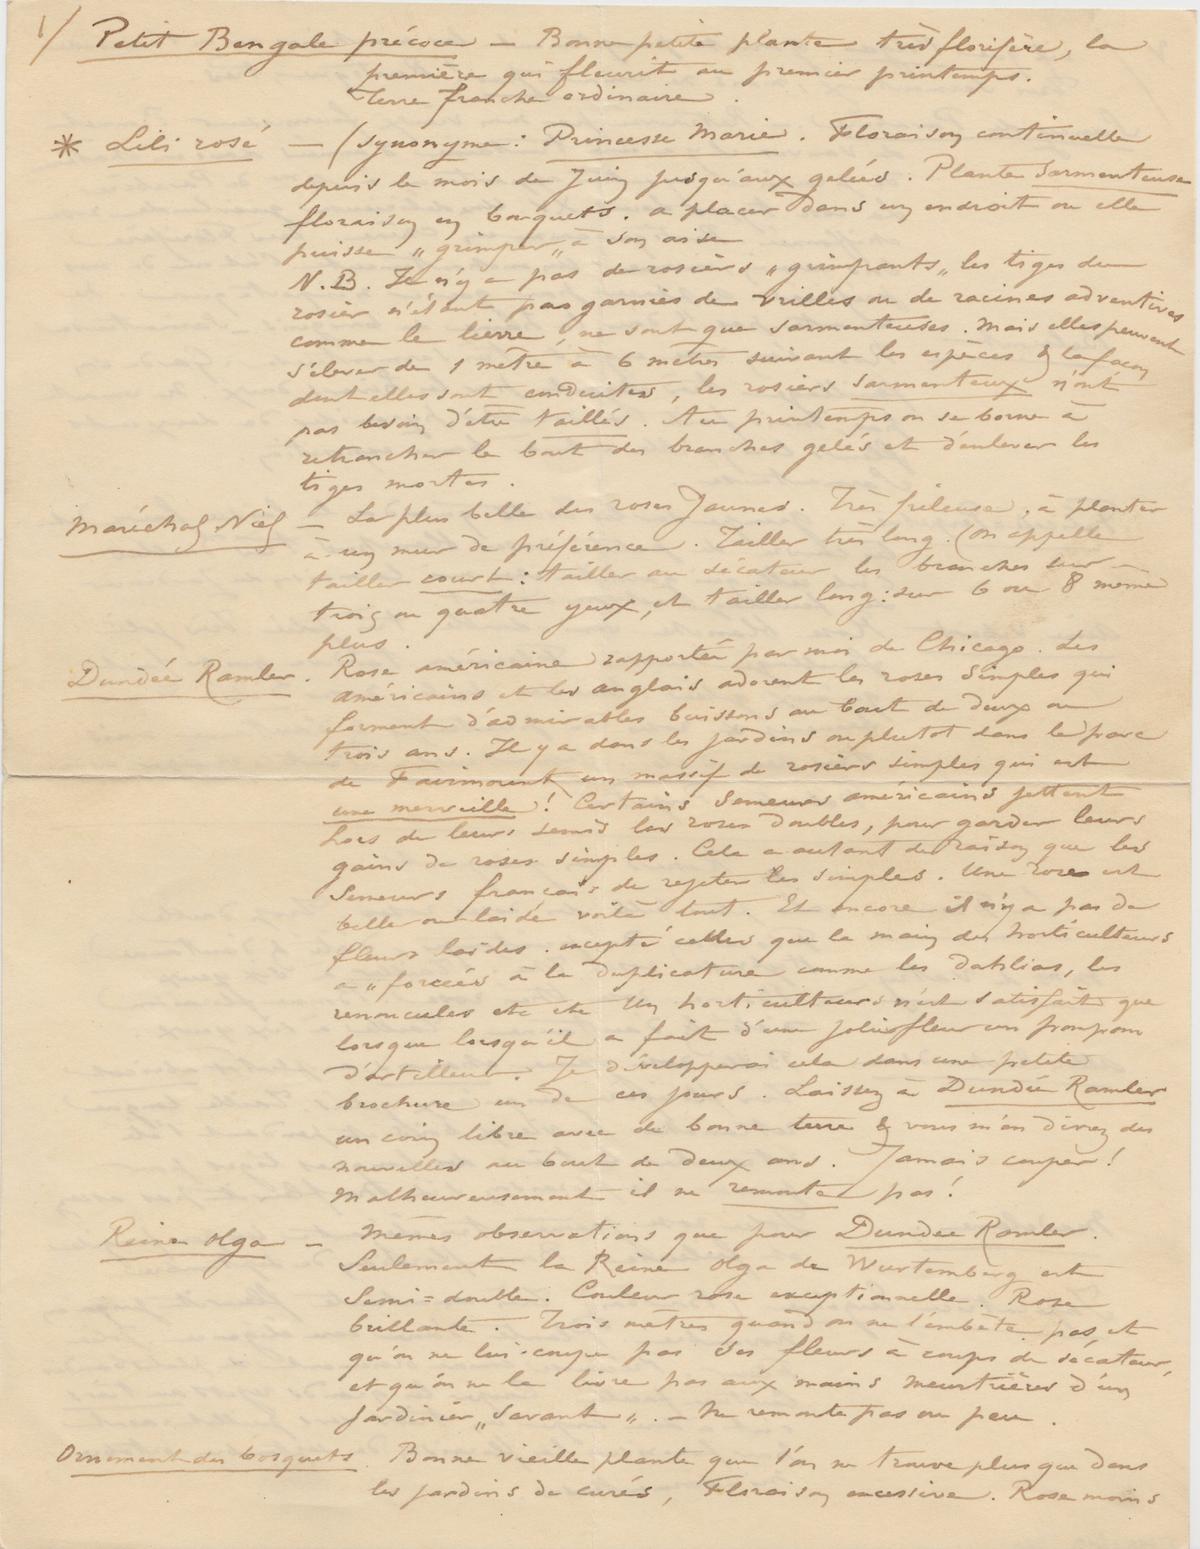 1/ Petit Bengale précoce — Bonne petite plante très florifère, la
première qui fleurit au premier printemps.
Terre franche ordinaire.
* Lili rosé — (synonyme: Princesse Marie. Floraison continuelle
depuis le mois de Juin jusqu'aux gelées. Plante sarmenteuse
floraison en bouquets. a placer dans un endroit ou elle
puisse „grimper„ à son aise
N.B. Il n'y a pas de rosiers „grimpants„ les tiges du
rosier n'étant pas garnies de vrilles ou de racines adventives
comme le lierre, ne sont que sarmenteuses. Mais elles peuvent
s'élever de 1 mètre à 6 mètres suivant les espèces & la façon
dont elles sont conduites, les rosiers sarmenteux n'ont
pas besoin d'être taillés. Au printemps on se borne à
retrancher le bout des branches gelés et d'enlever les
tiges mortes.
Maréchal Niel — La plus belle des roses Jaunes. Très frileuse, à planter
à un mur de préférence. Tailler très long. (on appelle
tailler court: tailler au sécateur les branches sur
trois ou quatre yeux, et tailler long: sur 6 ou 8 même
plus.
Dundée Rambler. Rose américaine rapportée par moi de Chicago. Les
américains et les anglais adorent les roses simples qui
forment d'admirables buissons au bout de deux ou
trois ans. Il y a dans les jardins ou plutot dans le parc
de Fairmount un massif de rosiers simples qui est
une merveille! Certains semeurs américains jettent
hors de leurs semis les roses doubles, pour garder leurs
gains de roses simples. Cela a autant de raison que les
semeurs français de rejeter les simples. Une rose est
belle ou laide voilà tout. Et encore il n'y a pas de
fleurs laides. excepté celles que la main des horticulteurs
a „forcées à la duplicature comme les dahlias, les
renoncules etc etc Un horticulteur n'est satisfait que
lorsque lorsqu'il a fait d'une jolie fleur un pompom
d'artilleur. Je développerai cela dans une petite
brochure un de ces jours. Laissez à Dundée Rambler
un coin libre avec de bonne terre & vous m'en direz des
nouvelles au bout de deux ans. Jamais couper!
Malheureusement il ne remonte pas!
Reine Olga — Mêmes observations que pour Dundee Rambler.
Seulement la Reine Olga de Wurtemberg est
Semi=double. Couleur rose exceptionnelle. Rose
brillante. Trois mètres quand on ne l'embête pas, et
qu'on ne lui coupe pas ses fleurs à coups de sécateur,
et qu'on ne la livre pas aux mains meurtrières d'un
Jardinier „savant„. — Ne remonte pas ou peu.
Ornement des bosquets. Bonne vieille plante que l'on ne trouve plus que dans
les jardins de curés, Floraison excessive. Rose moins